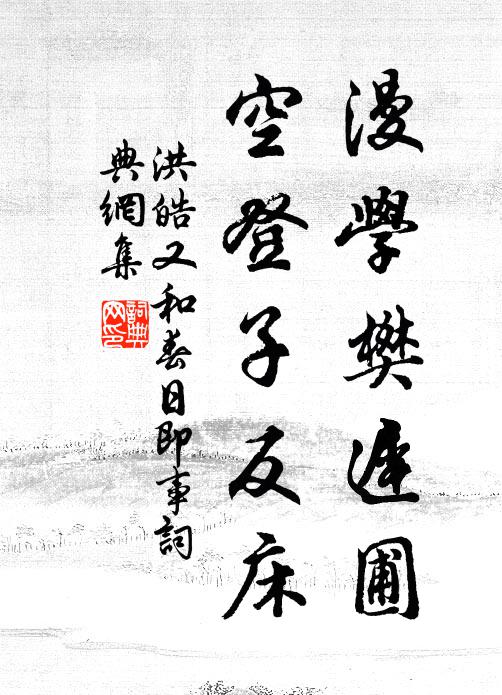 漫學樊遲圃
空登子反床
洪皓又和春日即事詞
典網集
詞典
网印